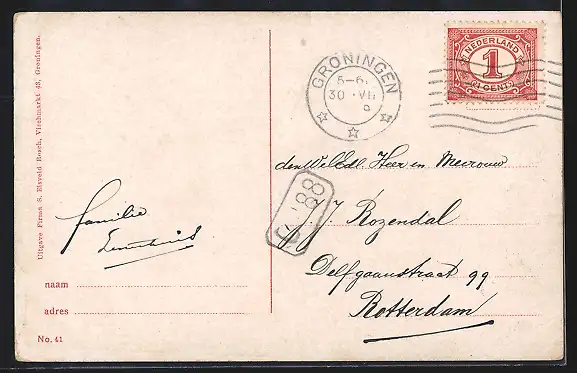 Uitgave Firma S. Elsveld Bosch, Vischmarkt 43, Groningen.
GRONINGEN
5-6.
30 · VII
NEDERLAND
1
CENT
den WelEdl. Heer en Mevrouw
88
J. Rozendal
Delfgaauwstraat 99
Rotterdam
familie
naam
adres
No. 41